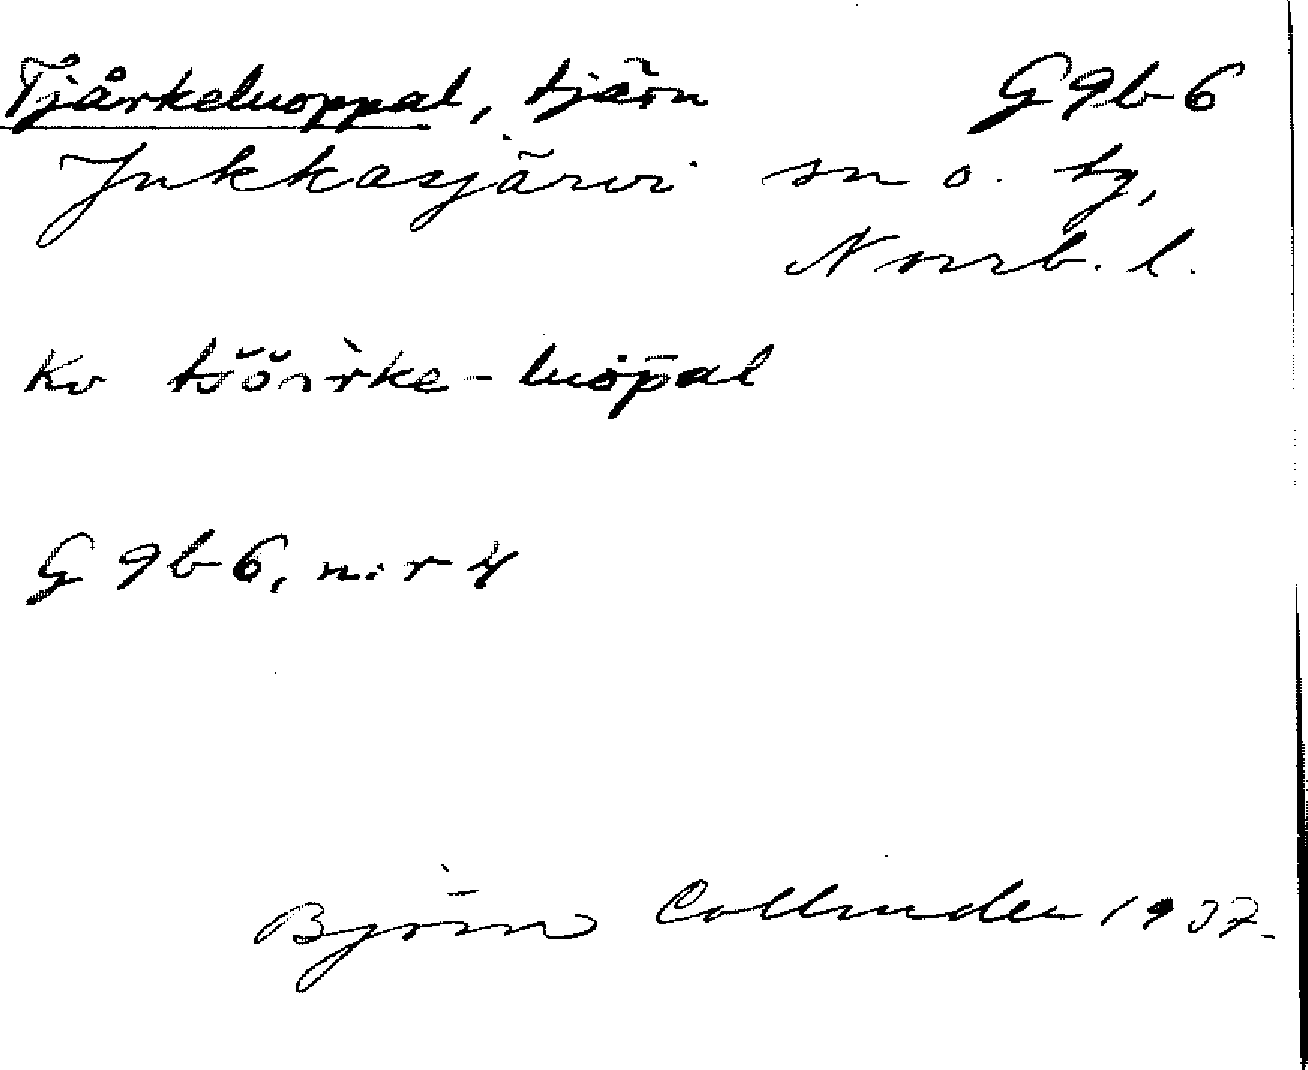 Tjårkeluoppal, tjärn G9b6
Jukkasjärvi sn o. tg,
Norrb. l.
Kv tšŏ̀rke-luopal
G 9b6, n:r 4
Björn Collinder 1937.